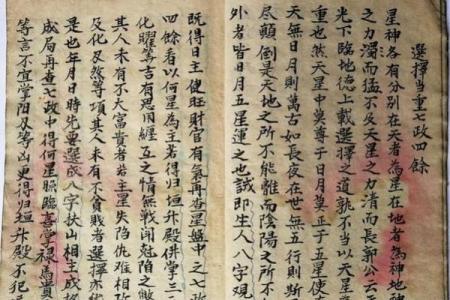 選擇當重七政四餘
星神各有分别在天者為星在地者為神地
之力濁而猛不及天星之力清而長郭公云天
光下臨地德上載選擇之道孰不當以天星
重也然天星中莫尊于日月莫正于五星使
天無日月則萬古如長夜在世無五行則斯
盡顛倒是天地之所不能離而陰陽之所不
外者皆日月五星運之也誠即生人八字观
既得日主健旺財官有氣再查星盤中之七政
四餘看以何星為主若得归垣升殿併掌三
化曜等吉有恩用纏互之情無戰鬪尅陷之敝
其人未有不大富貴者若主星失陷仇难相
及化殳然等項其人未有不貧賤者選擇亦
是也年月日時先要選成八字扶山相主成格
成局再查七政中得何星照臨喜學禄馬貴
等言不宜當陽及等凶更得归垣升殿不犯